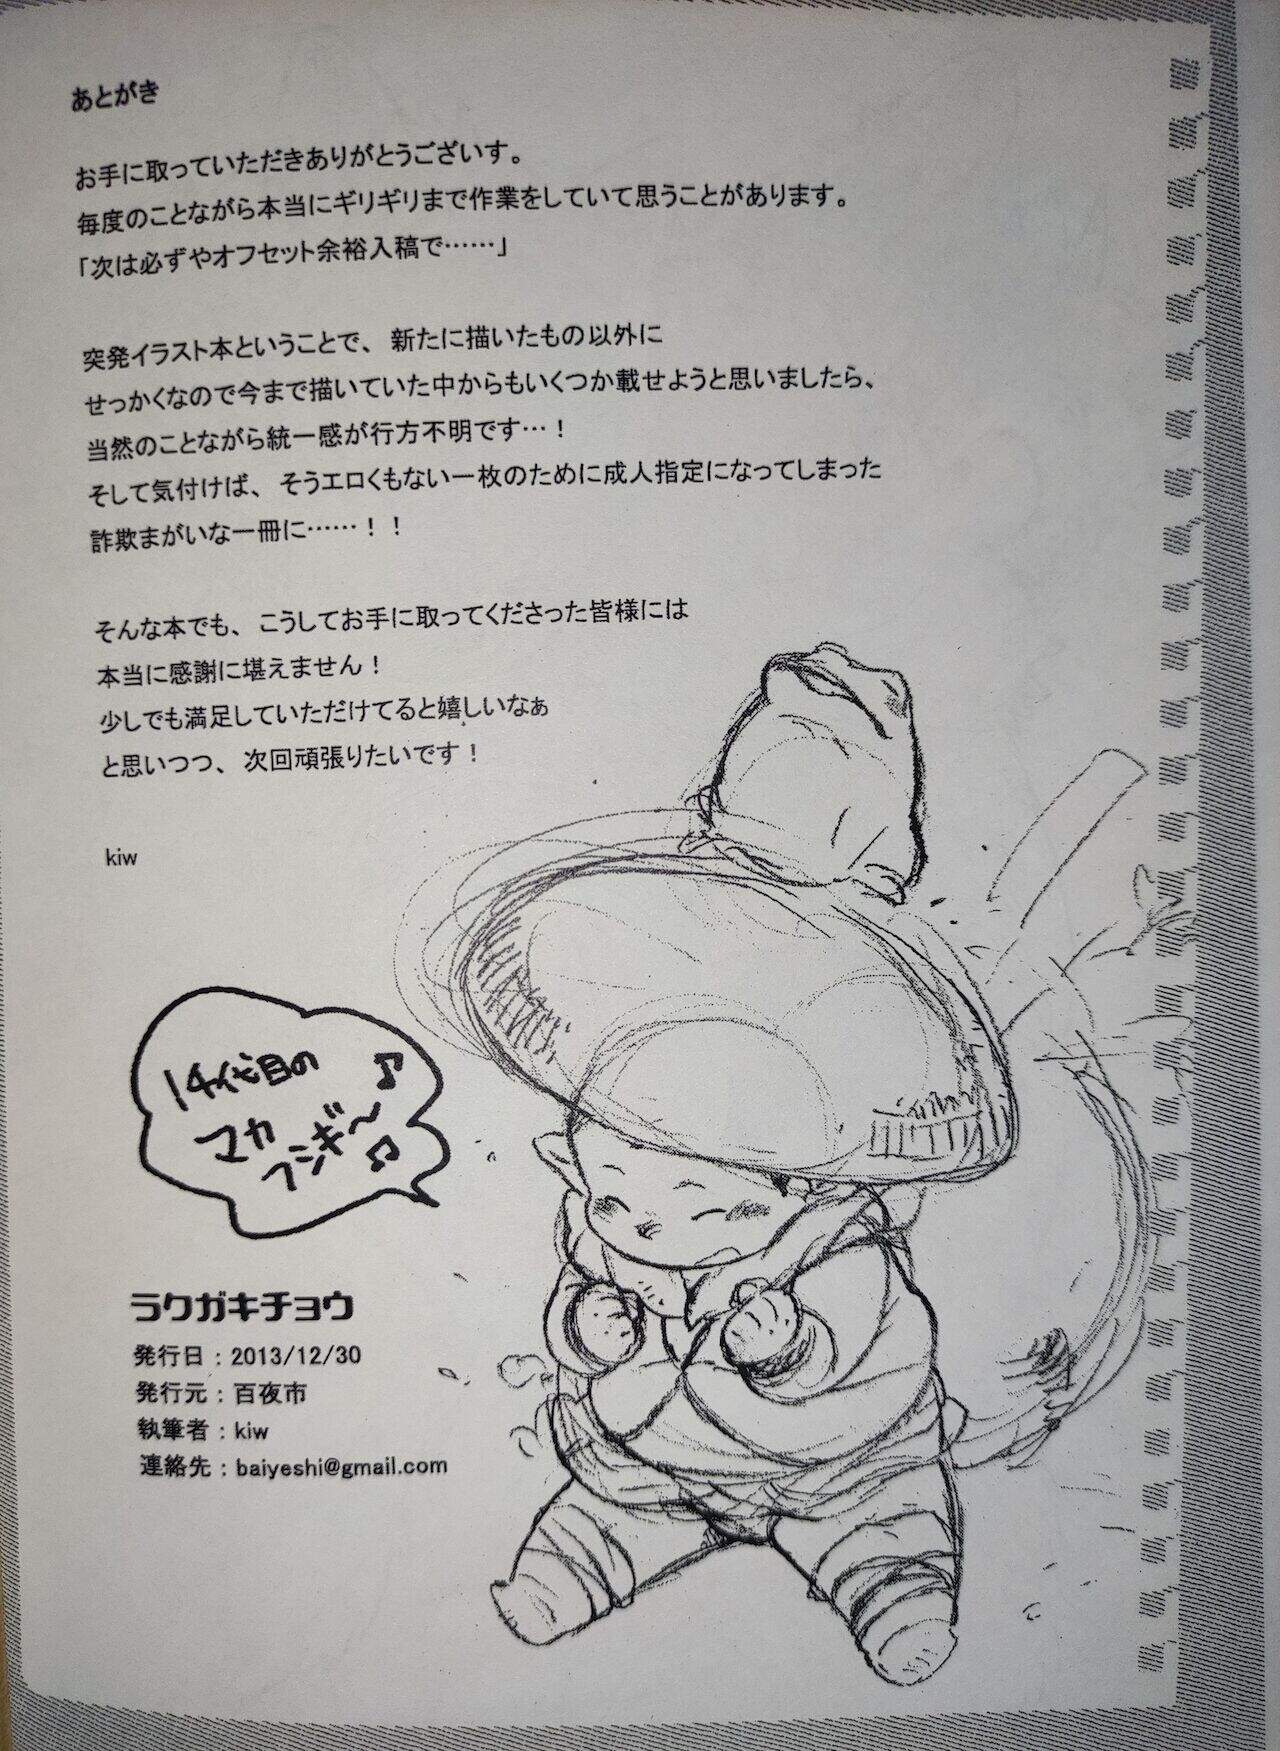 あとがき
お手に取っていただきありがとうございす。
毎度のことながら本当にギリギリまで作業をしていて思うことがあります。
「次は必ずやオフセット余裕入稿で……」
突発イラスト本ということで、新たに描いたもの以外に
せっかくなので今まで描いていた中からもいくつか載せようと思いましたら、
当然のことながら統一感が行方不明です…！
そして気付けば、そうエロくもない一枚のために成人指定になってしまった
詐欺まがいな一冊に……！！
そんな本でも、こうしてお手に取ってくださった皆様には
本当に感謝に堪えません！
少しでも満足していただけてると嬉しいなぁ
と思いつつ、次回頑張りたいです！
kiw
14代目の
マカ
フシギ〜
ラクガキチョウ
発行日：2013/12/30
発行元：百夜市
執筆者：kiw
連絡先：baiyeshi@gmail.com